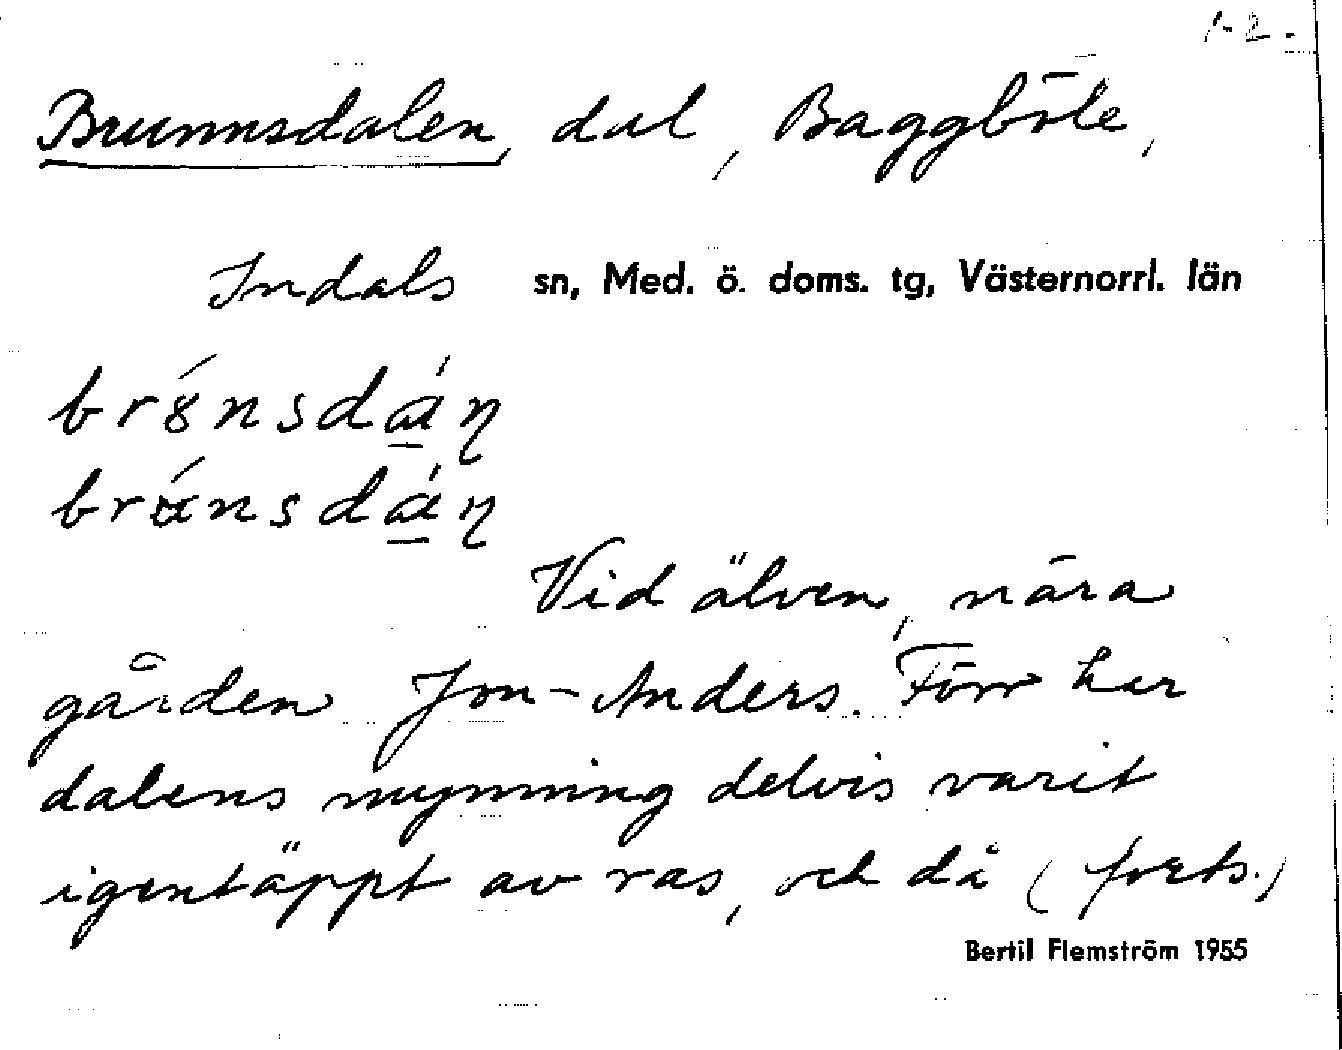 1-2.
Brunnsdalen, dal, Baggböle,
Indals sn, Med. ö. doms. tg, Västernorrl. län
br8́nsdá̲ŋ
brάnsdá̲ŋ
Vid älven, nära
gården Jon-Anders. Förr har
dalens mynning delvis varit
igentäppt av ras, och då (forts.)
Bertil Flemström 1955